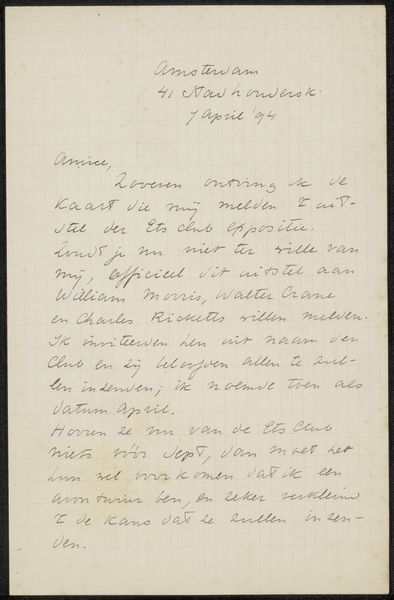 Amsterdam
41 Stadhoudersk.
7 April '94
Amice,
Zooeven ontving ik de
kaart die mij melden 't uit-
stel der Ets club Expositie.
Zoudt je nu niet ter wille van
mij, officieel dit uitstel aan
William Morris, Walter Crane
en Charles Ricketts willen melden.
Ik inviteerden hen uit naam der
Club en zij beloofden allen te zul-
len inzenden; ik noemde toen als
datum April.
Hooren ze nu van de Ets Club
niets vóór Sept, dan moet het
hun wel voorkomen dat ik een
avonturier ben, en zeker verkleind
't de kans dat ze zullen inzen-
den.